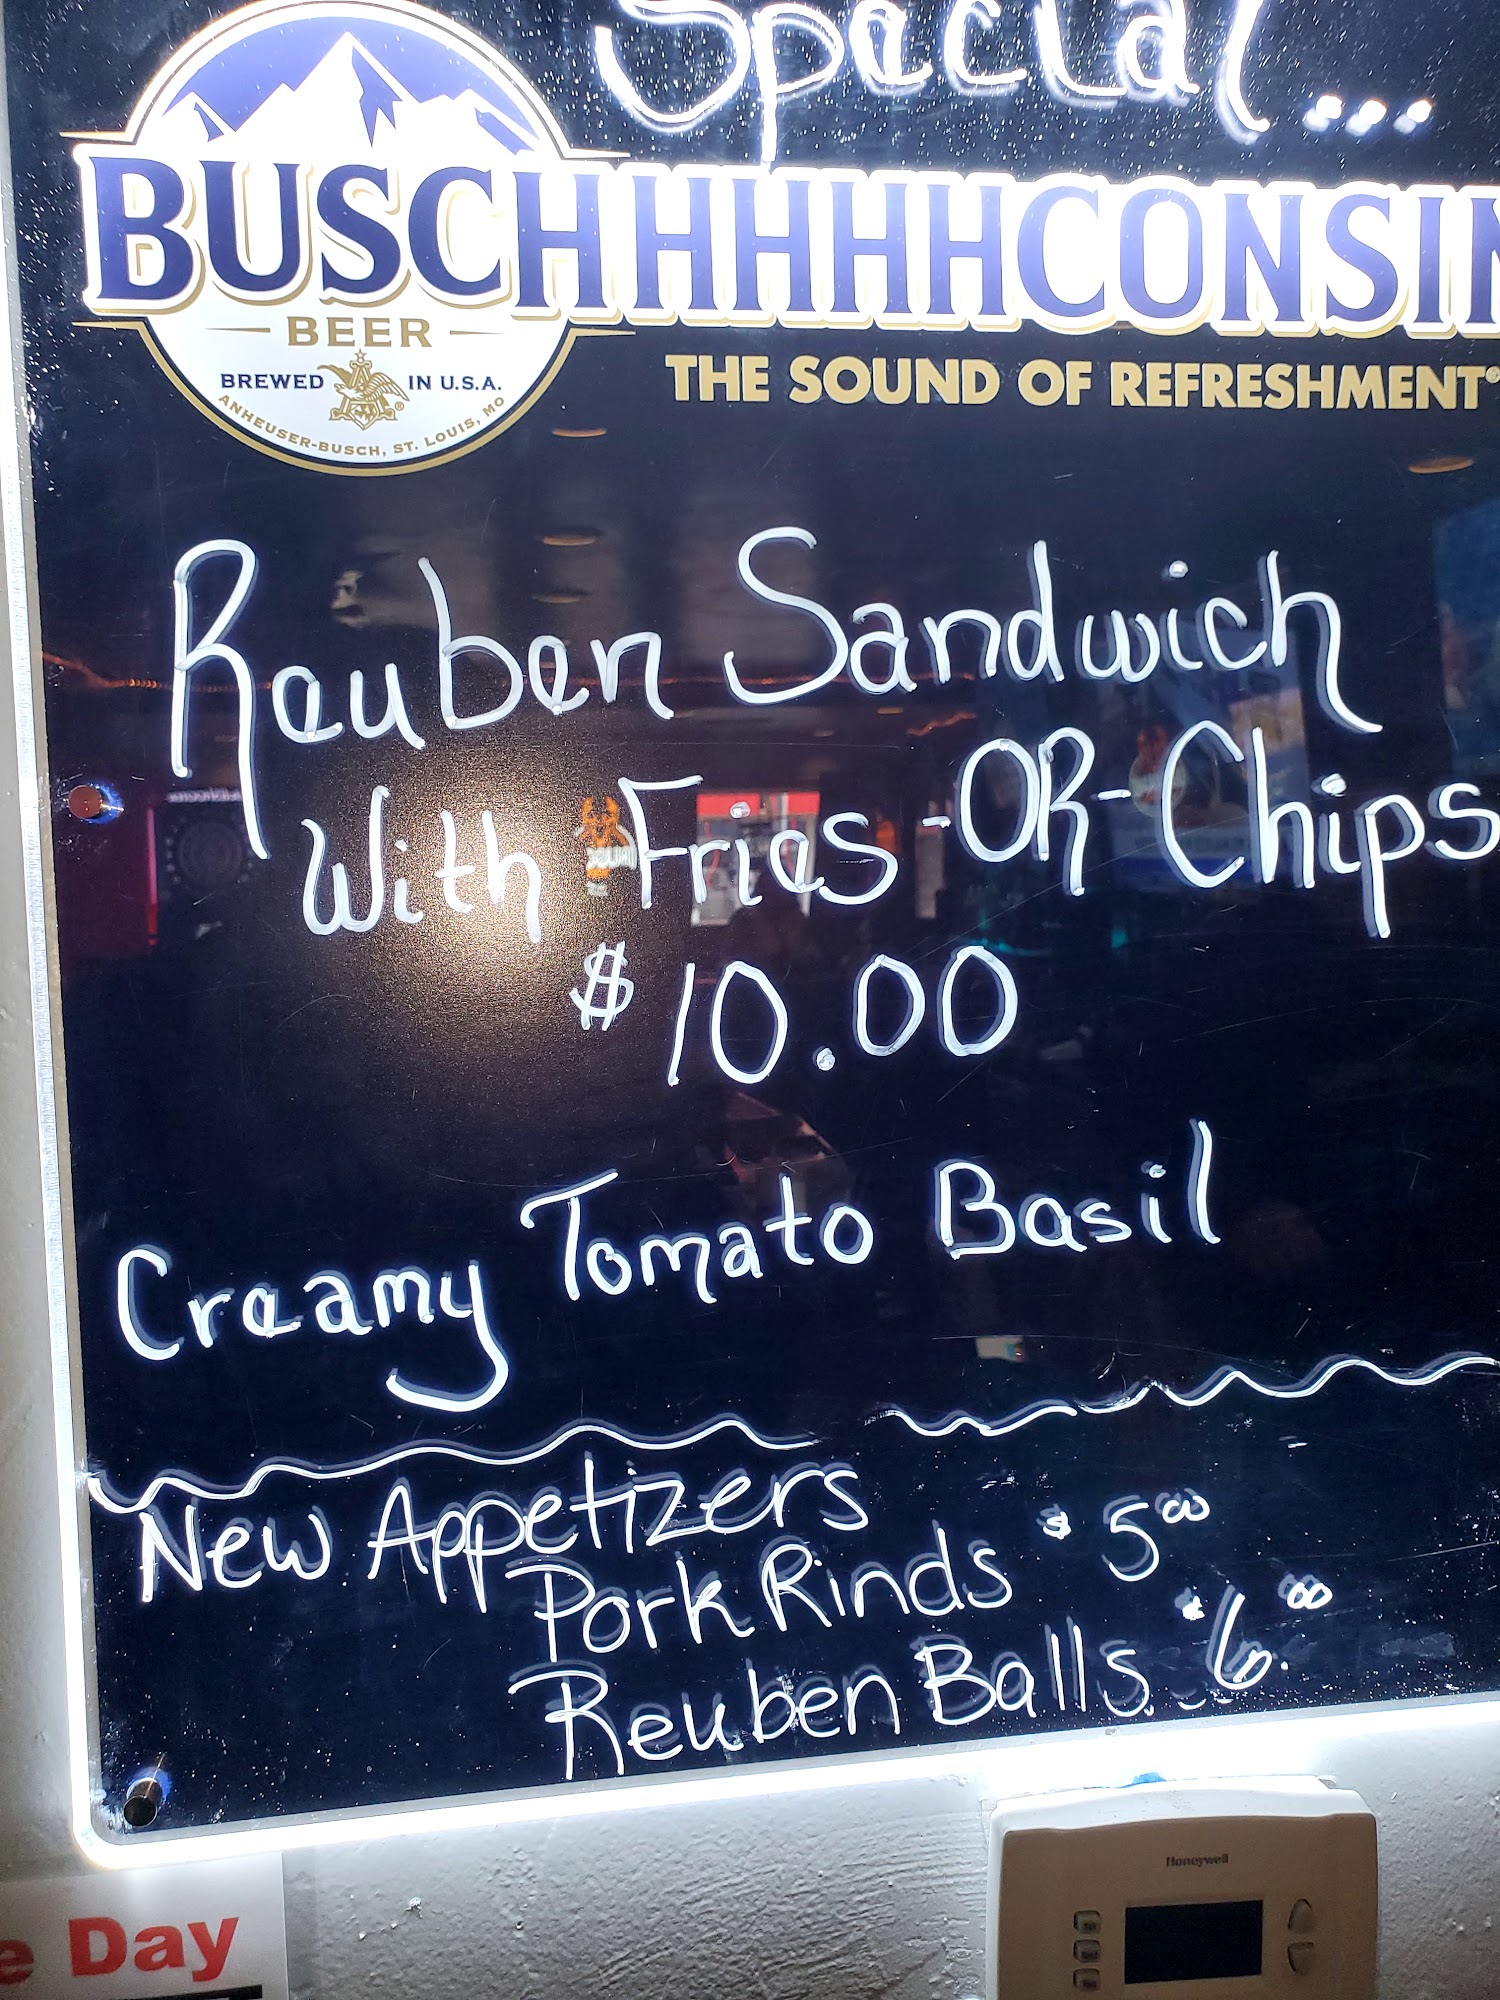 Special...
BUSCHHHHHCONSIN
BEER
BREWED IN U.S.A.
ANHEUSER-BUSCH, ST. LOUIS, MO
THE SOUND OF REFRESHMENT®
Reuben Sandwich
With Fries -OR- Chips
$10.00
Creamy Tomato Basil
New Appetizers
Pork Rinds $5.00
Reuben Balls $6.00
Honeywell
e Day